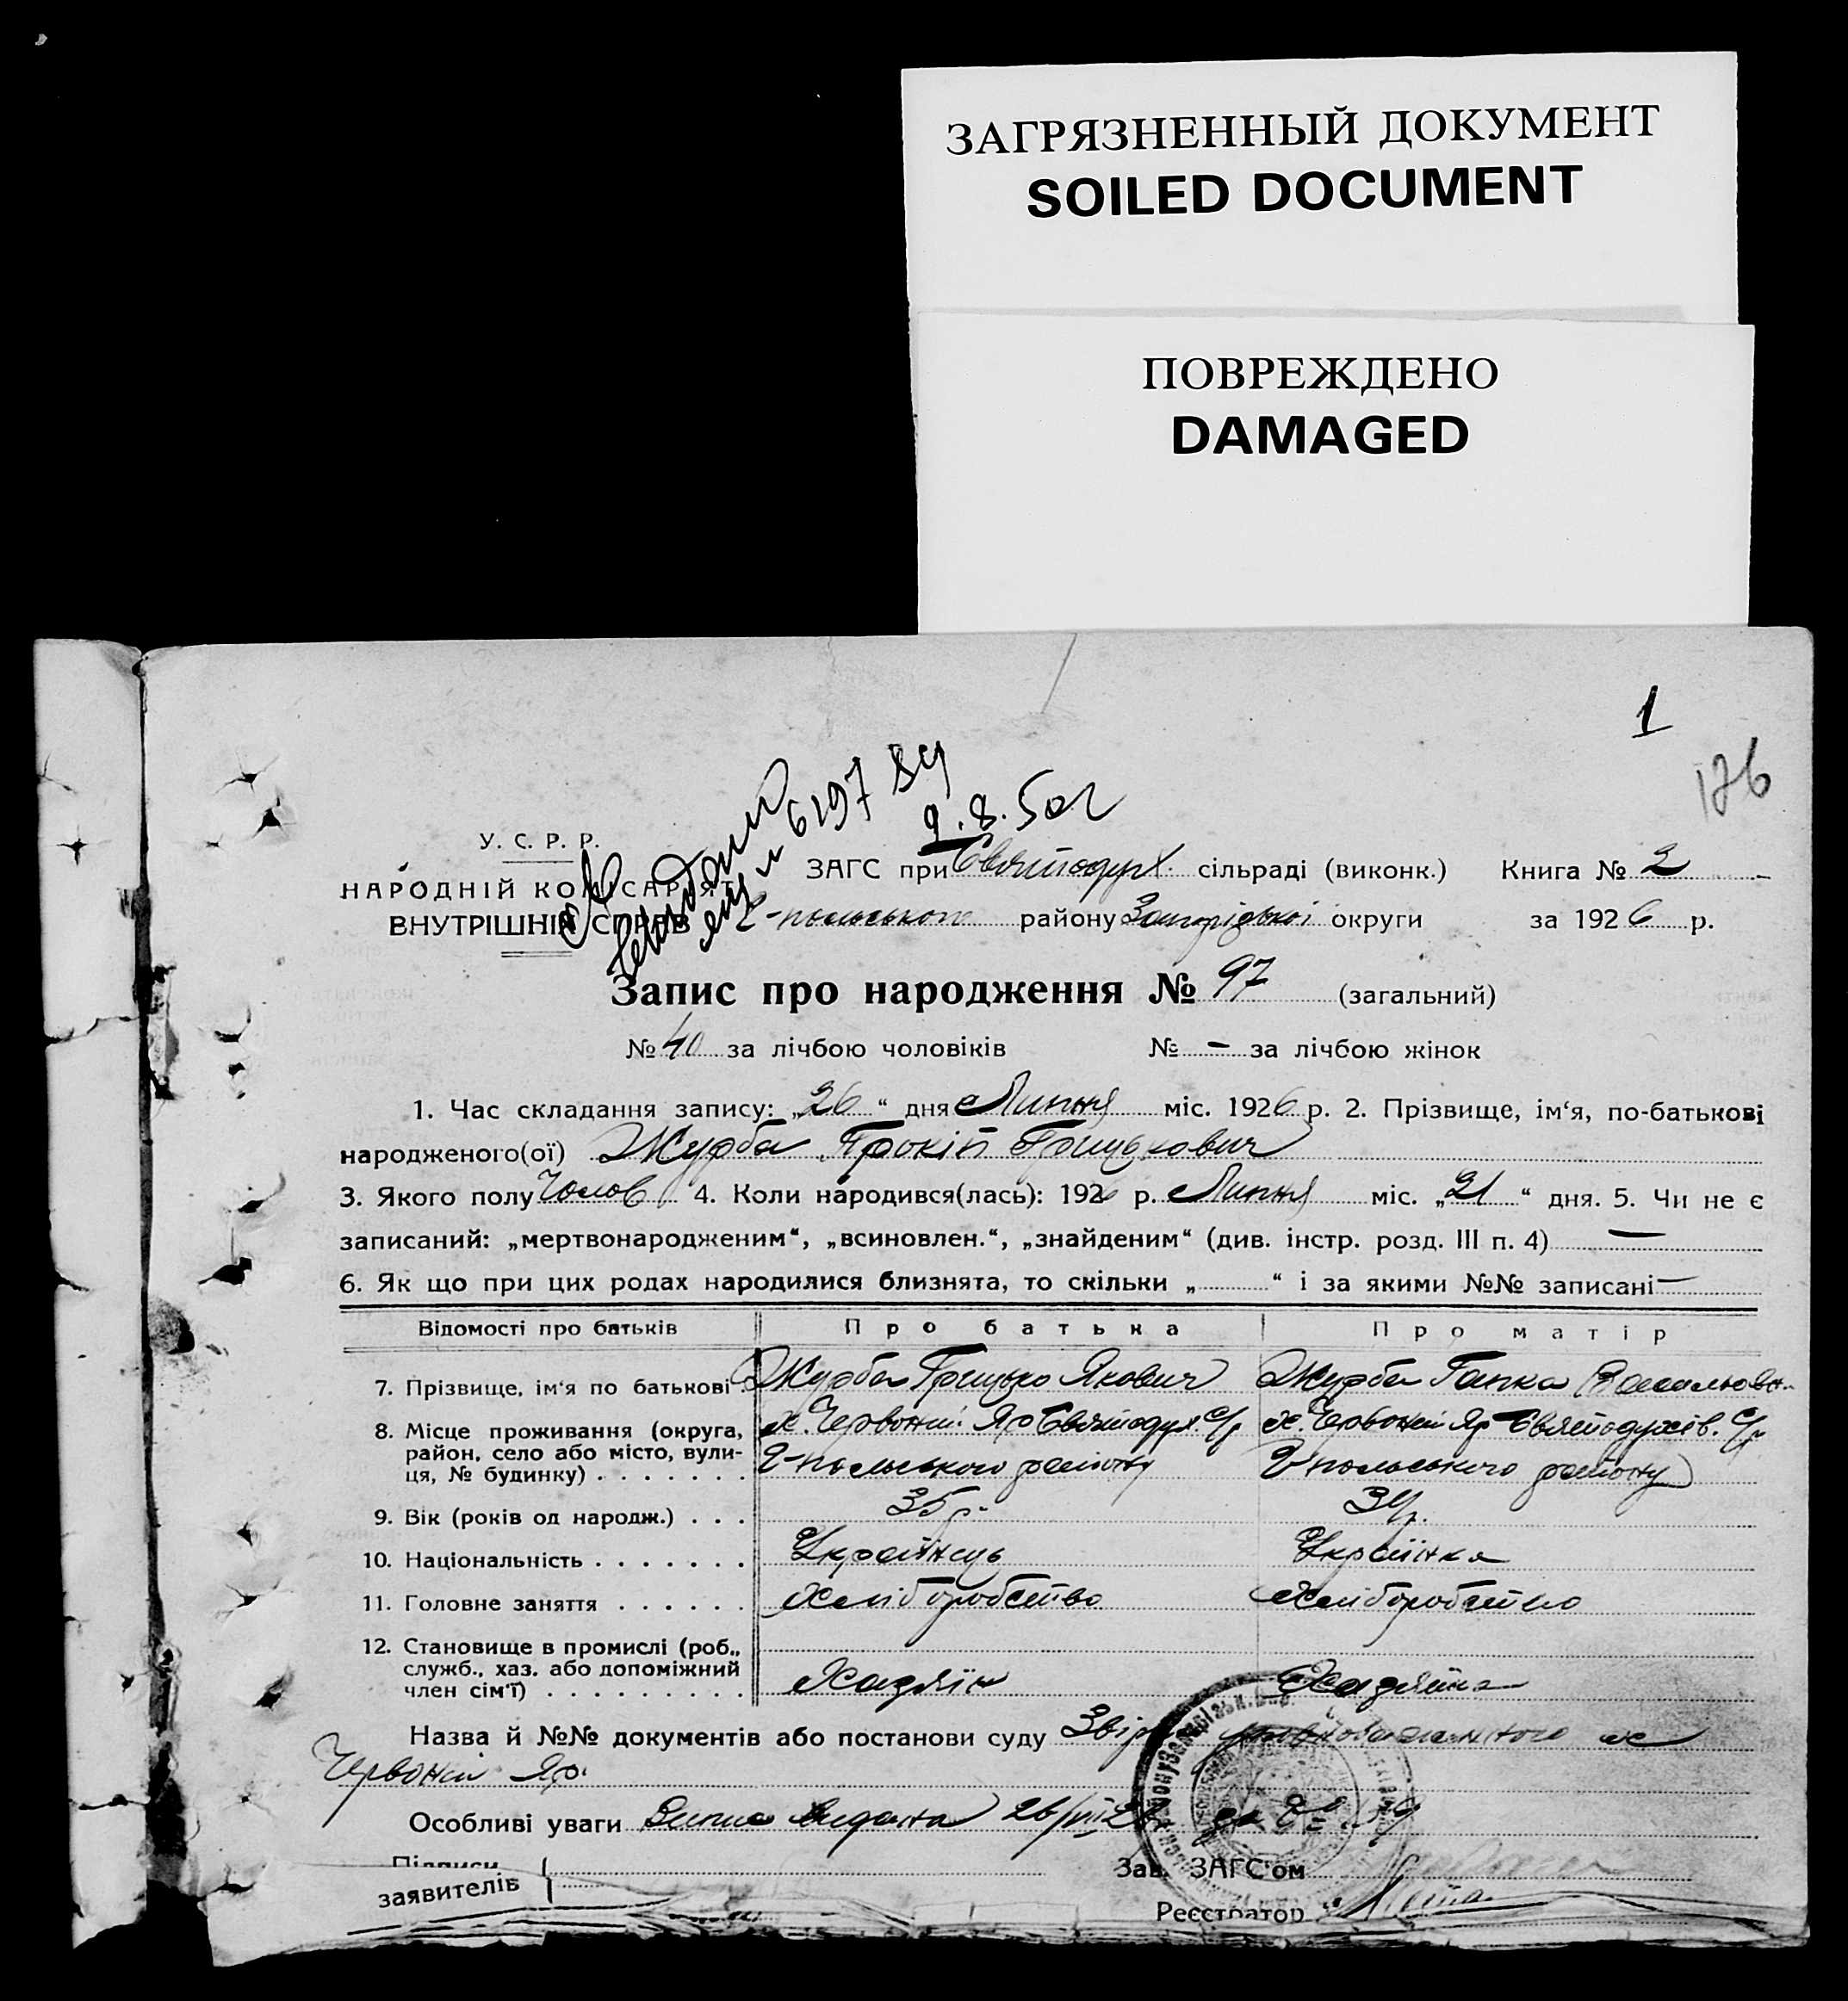 ЗАГРЯЗНЕННЫЙ ДОКУМЕНТ
SOILED DOCUMENT
ПОВРЕЖДЕНО
DAMAGED
1
126
6197
9.8.50г
У. С. Р. Р.
НАРОДНІЙ КОМІСАРІЯТ
ВНУТРІШНІХ СПРАВ
ЗАГС при Святодух. сільраді (виконк.) Книга № 2
-польського району Запорізької округи за 1926 р.
Запис про народження № 97 (загальний)
№ 40 за лічбою чоловіків № — за лічбою жінок
1. Час складання запису: „26“ дня Липня міс. 1926 р. 2. Прізвище, ім‘я, по-батькові
народженого(ої) Журба Прокіп Грицькович
3. Якого полу Чолов 4. Коли народився(лась): 1926 р. Липня міс. „21“ дня. 5. Чи не є
записаний: „мертвонародженим“, „всиновлен.“, „знайденим“ (див. інстр. розд. III п. 4) —
6. Як що при цих родах народилися близнята, то скільки „ “ і за якими №№ записані —
Відомості про батьків Про батька Про матір
7. Прізвище, ім‘я по батькові Журба Грицько Якович Журба Гапка Васильовн.
8. Місце проживання (округа, х. Червоний Яр Святодух. с/р х. Червоний Яр Святодухів. с/р
район, село або місто, вули-
ця, № будинку) . . . . . . . -польського району -польського району
9. Вік (років од народж.) . . . 35 р. 34 р.
10. Національність . . . . . . . Українець Українка
11. Головне заняття . . . . . . Хліборобство Хліборобство
12. Становище в промислі (роб.,
служб., хаз. або допоміжний
член сім‘ї) . . . . . . . . . Хазяїн Хазяйка
Назва й №№ документів або постанови суду уповноваженного х
Червоний Яр.
Особливі уваги Випис видана
Підписи
заявителів
Зав. ЗАГС‘ом
Реєстратор